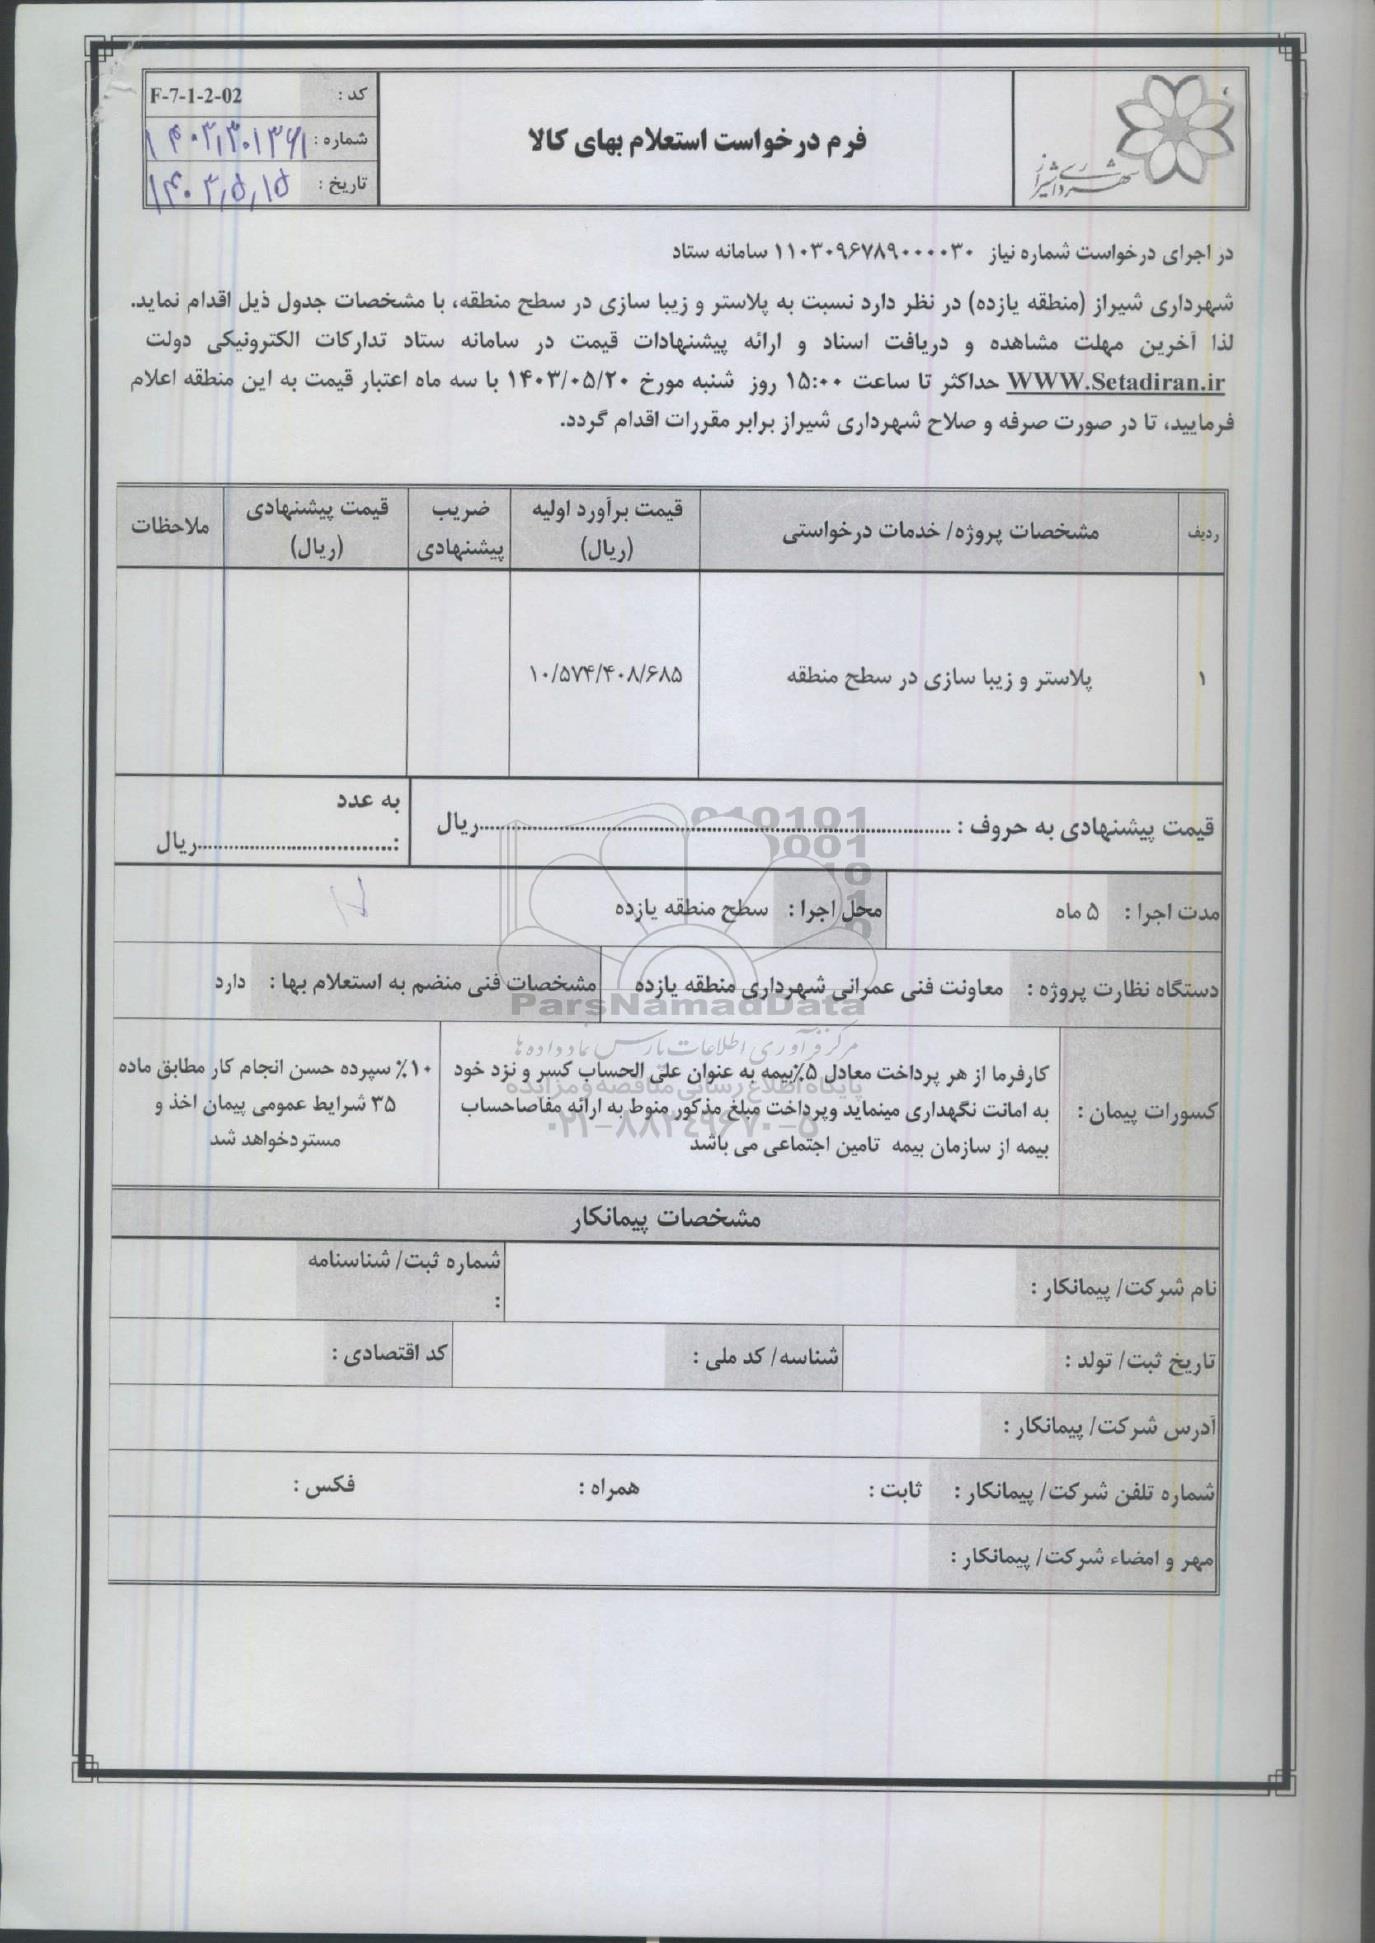 شهرداری شیراز
فرم درخواست استعلام بهای کالا
کد : F-7-1-2-02
شماره :
تاریخ : ۱۴۰۳,۵,۱۵
در اجرای درخواست شماره نیاز ۱۱۰۳۰۹۶۷۸۹۰۰۰۰۳۰ سامانه ستاد
شهرداری شیراز (منطقه یازده) در نظر دارد نسبت به پلاستر و زیبا سازی در سطح منطقه، با مشخصات جدول ذیل اقدام نماید.
لذا آخرین مهلت مشاهده و دریافت اسناد و ارائه پیشنهادات قیمت در سامانه ستاد تدارکات الکترونیکی دولت
WWW.Setadiran.ir حداکثر تا ساعت ۱۵:۰۰ روز شنبه مورخ ۱۴۰۳/۰۵/۲۰ با سه ماه اعتبار قیمت به این منطقه اعلام
فرمایید، تا در صورت صرفه و صلاح شهرداری شیراز برابر مقررات اقدام گردد.
ردیف
مشخصات پروژه/ خدمات درخواستی
قیمت برآورد اولیه
(ریال)
ضریب
پیشنهادی
قیمت پیشنهادی
(ریال)
ملاحظات
۱
پلاستر و زیبا سازی در سطح منطقه
۱۰/۵۷۴/۴۰۸/۶۸۵
قیمت پیشنهادی به حروف : ........................................ریال
به عدد
:....................................ریال
مدت اجرا : ۵ ماه
محل اجرا : سطح منطقه یازده
دستگاه نظارت پروژه : معاونت فنی عمرانی شهرداری منطقه یازده
مشخصات فنی منضم به استعلام بها : دارد
کسورات پیمان :
کارفرما از هر پرداخت معادل ۵٪بیمه به عنوان علی الحساب کسر و نزد خود
به امانت نگهداری مینماید وپرداخت مبلغ مذکور منوط به ارائه مفاصاحساب
بیمه از سازمان بیمه تامین اجتماعی می باشد
۱۰٪ سپرده حسن انجام کار مطابق ماده
۳۵ شرایط عمومی پیمان اخذ و
مستردخواهد شد
مشخصات پیمانکار
نام شرکت/ پیمانکار :
شماره ثبت/ شناسنامه
:
تاریخ ثبت/ تولد :
شناسه/ کد ملی :
کد اقتصادی :
آدرس شرکت/ پیمانکار :
شماره تلفن شرکت/ پیمانکار : ثابت : همراه : فکس :
مهر و امضاء شرکت/ پیمانکار :
ParsNamadData
مرکز فرآوری اطلاعات پارس نماد داده ها
پایگاه اطلاع رسانی مناقصه و مزایده
۰۲۱-۸۸۳۴۹۶۷۰-۵